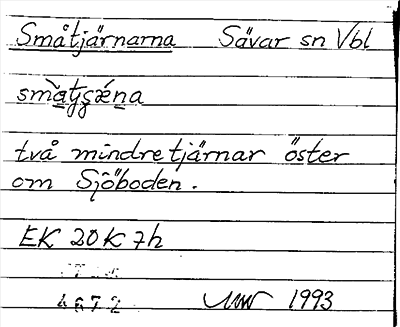 Småtjärnarna Sävar sn Vbl
två mindre tjärnar öster
om Sjöboden.
EK 20K 7h
4672 1993